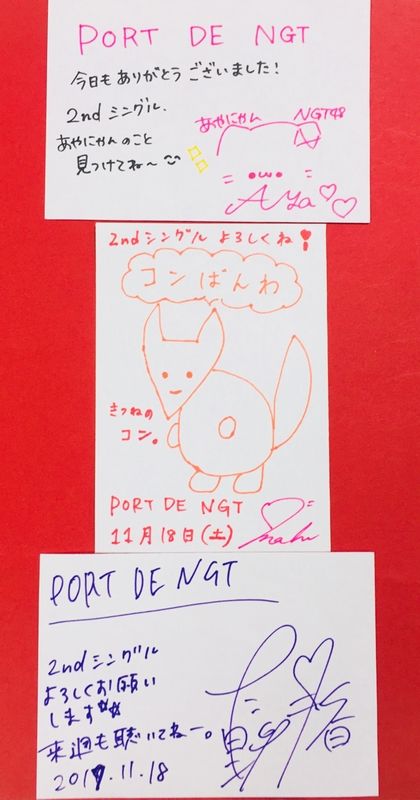 PORT DE NGT
今日もありがとうございました!
2ndシングル、
あやにゃんのこと
見つけてね〜
あやにゃん
NGT48
Aya
2ndシングル よろしくね!
コンばんわ
きつねの
コン。
PORT DE NGT
11月18日(土)
PORT DE NGT
2ndシングル
よろしくお願い
します
来週も聴いてねー。
2017.11.18